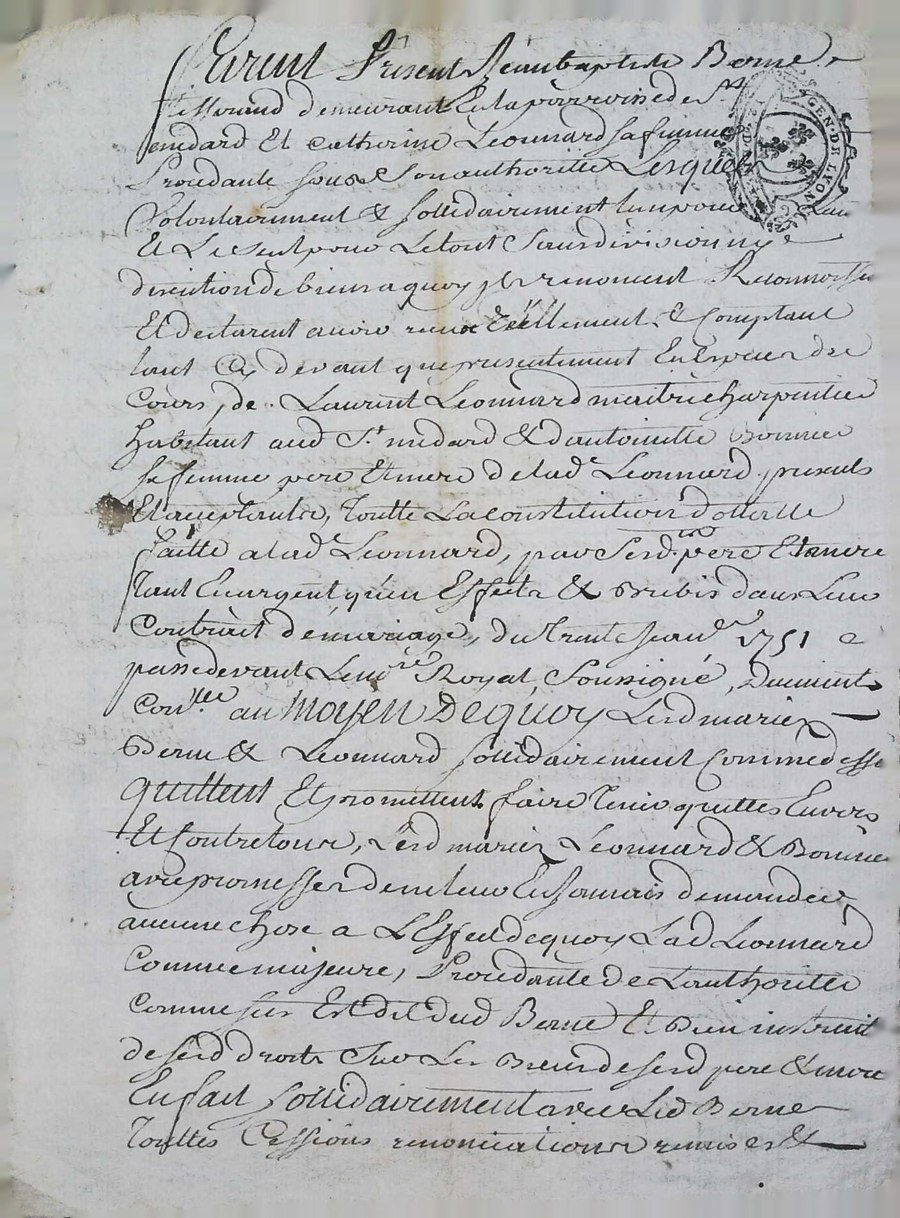 Furent Presents Jean baptiste Berne
demeurant En la parroisse de St
medard Et Catherine Leonnard sa femme
Procedante sous Son authoritée Lesquels
Volontairement & sollidairement lun pour Lau
Et Le seul pour Le tout Sans division ny
discution de biens a quoy ils renoncent Reconnoissent
Et declarent avoir receu Réellement & Comptant
tant Cy devant que presentement En Especes de
Cours, de Laurent Leonnard maitre charpentier
habitant aud St medard & dantoinette Bonnier
sa femme pere Et mere de lad. Leonnard, presents
Et acceptants, Toutte La constitution dottalle
faitte a lad. Leonnard, par Sesd. pere Et mere
Tant En argent qu'en Effets & Brebis dans Leur
Contract de mariage, du trente Janer 1751
passé devant Le nre Royal Soussigné, Duement
Conllé au moyen De quoy Lesd mariez
Berne & Leonnard sollidairement Comme dessus
quittent Et promettent faire tenir quittes Envers
Et Contre tous, Lesd mariez Leonnard & Bonnier
avec promesses de ne leur En Jamais demander
aucune chose a L'Effect de quoy Lad Leonnard
Comme majeure, Procedante de Lauthoritée
Comme sus Est dit dud Berne Et Bien instruit
de sesd droits Sur Les Biens de sesd pere & mere
En fait sollidairement avec Led Berne
Touttes Cessions renonciations remises &
GEN. DE LYON